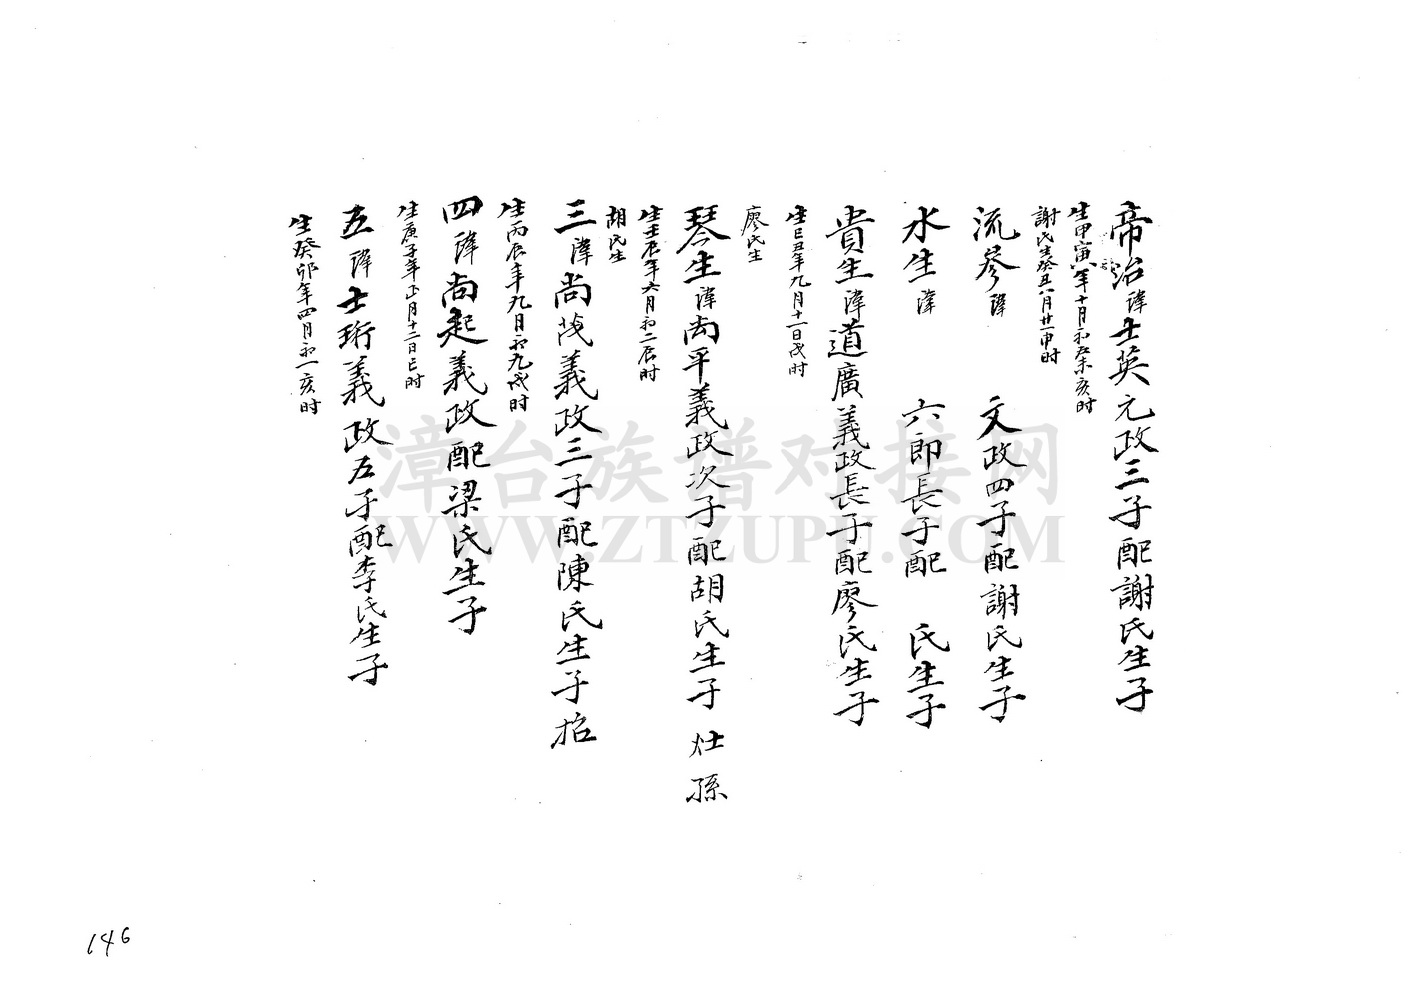 帝治諱士英元政三子配謝氏生子
生甲寅年十月初癸未亥时
謝氏生癸丑八月廿一申时
流參諱 文政四子配謝氏生子
水生諱 六郎長子配 氏生子
貴生諱道廣義政長子配廖氏生子
生己丑年九月十一日戌时
廖氏生
琴生諱尚平義政次子配胡氏生子 灶 孫
生壬辰年六月初二辰时
胡氏生
三諱尚茂義政三子配陳氏生子 招
生丙辰年九月初九戌时
四諱尚起義政配梁氏生子
生庚子年正月十二日巳时
五諱士珩義政五子配李氏生子
生癸卯年四月初一亥时
漳台族谱对接网
WWW.ZTZUPU.COM
146